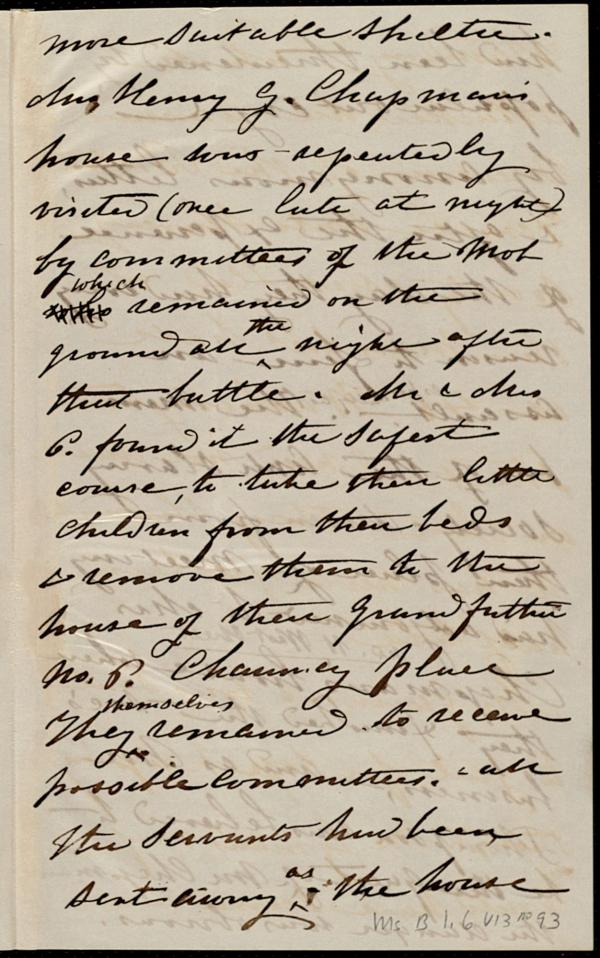 more suitable shelter.
Mrs Henry G. Chapman's
house was repeatedly
visited (once late at night)
by committees of the Mob
which
remained on the
ground all the night after
that battle. Mr & Mrs
C. found it the safest
course, to take their little
children from their beds
& remove them to the
house of their Grandfather
No. Chauncy place
They themselves remained to receive
possible committees. all
the servants had been
sent away as the house
Ms B 1.6 V13 no 93